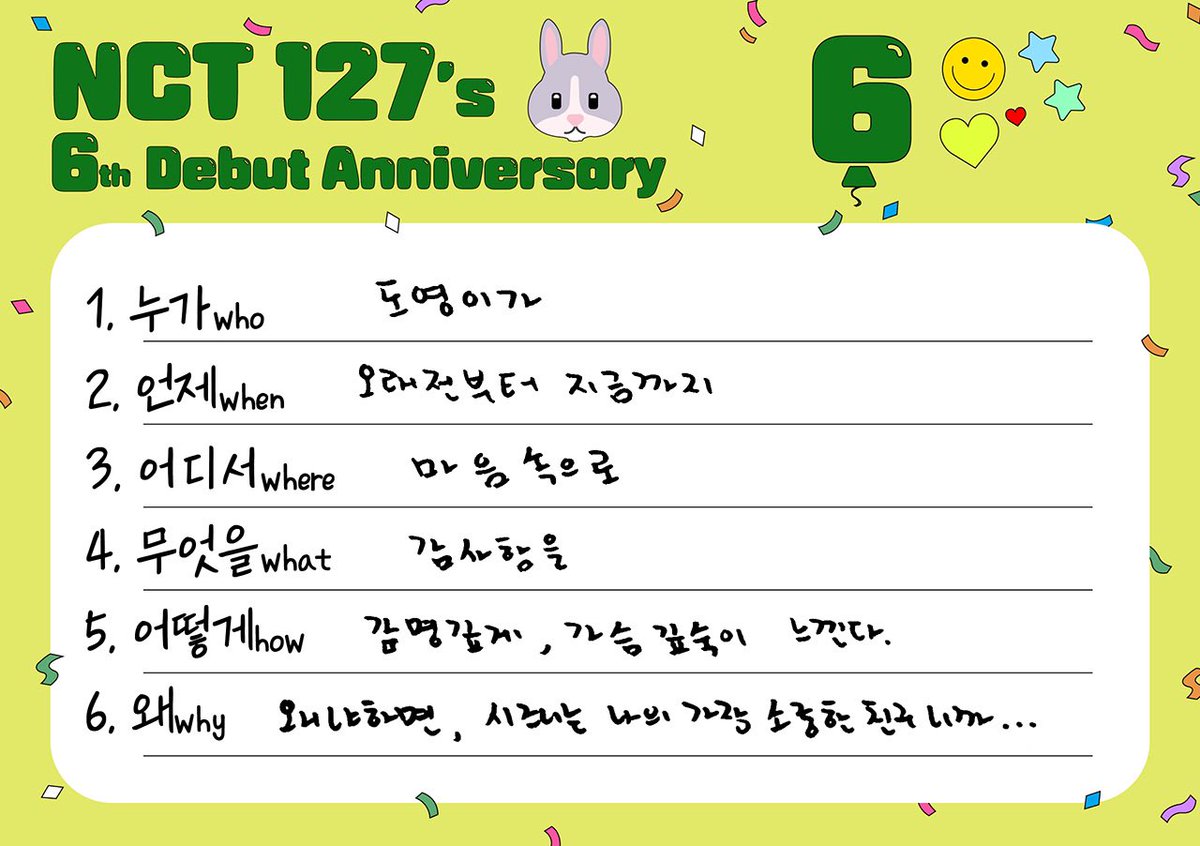 NCT 127's
6th Debut Anniversary
6
1. 누가who 도영이가
2. 언제when 오래전부터 지금까지
3. 어디서where 마음속으로
4. 무엇을what 감사함을
5. 어떻게how 감명깊게, 가슴 깊숙이 느낀다.
6. 왜why 왜냐하면, 시즈니는 나의 가장 소중한 친구니까...